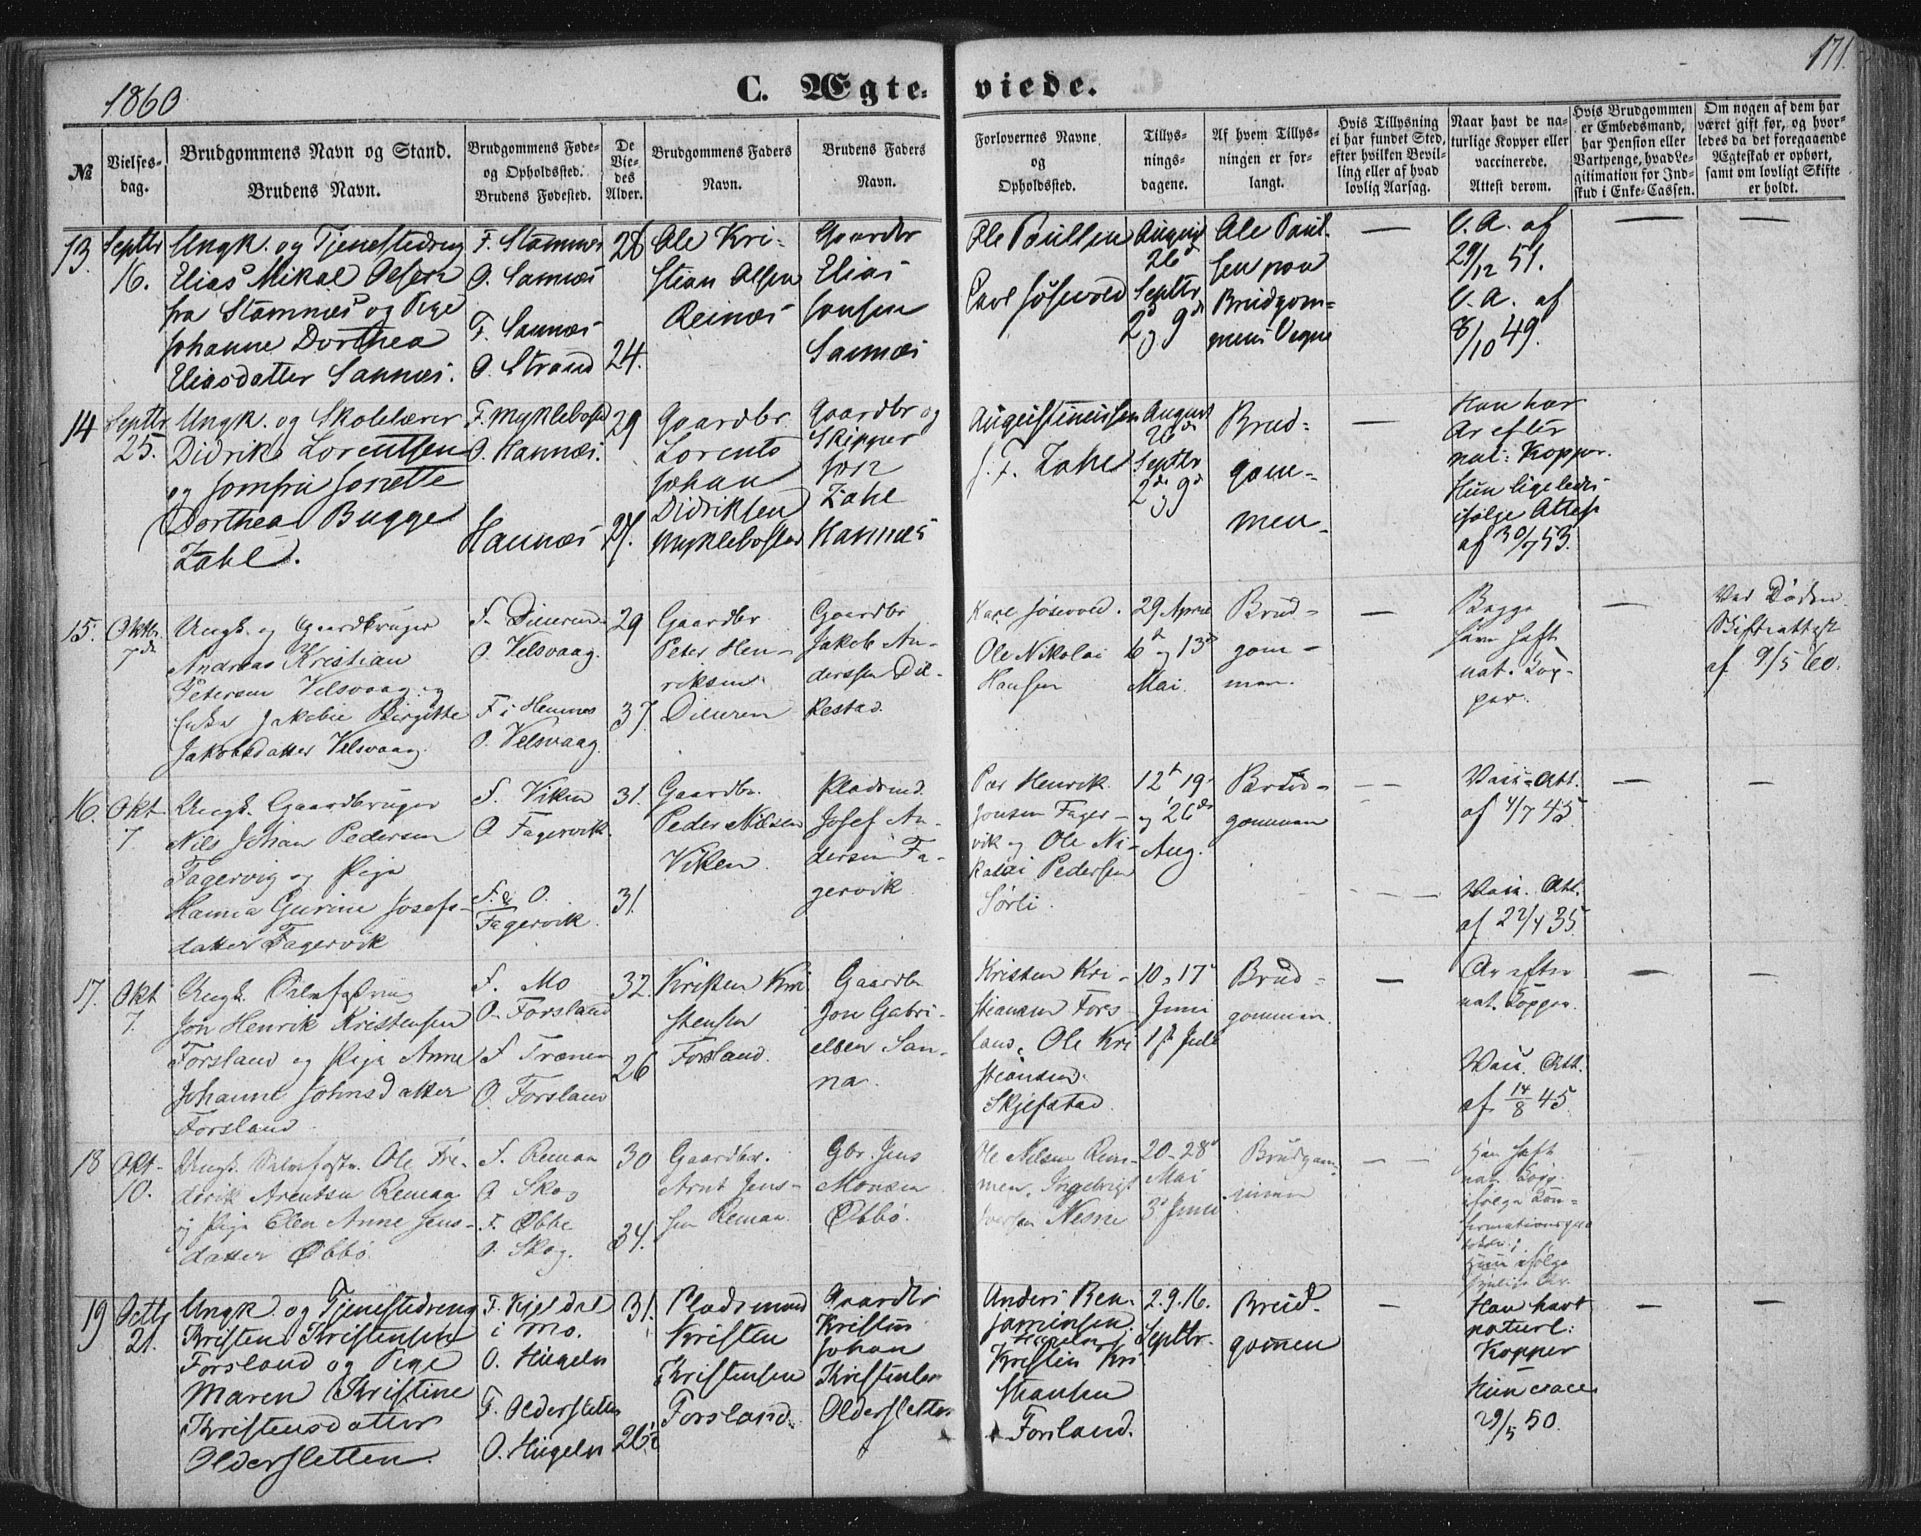 1860
C. Ægte-
viede.
171.
№
Vielses-
dag.
Brudgommens Navn og Stand.
Brudens Navn.
Brudgommens Føde-
og Opholdssted.
Brudens Fødested.
De
Vie-
des
Alder.
Brudgommens Faders
Navn.
Brudens Faders
Navn.
Forlovernes Navne
og
Opholdssted.
Tillys-
nings-
dagene.
Af hvem Tillys-
ningen er for-
langt.
Hvis Tillysning
ei har fundet Sted,
efter hvilken Bevil-
ling eller af hvad
lovlig Aarsag.
Naar havt de na-
turlige Kopper eller
vaccinerede.
Attest derom.
Hvis Brudgommen
er Embedsmand,
har Pension eller
Vartpenge, hvad Le-
gitimation for Ind-
skud i Enke-Cassen.
Om nogen af dem har
været gift før, og hvor-
ledes da det foregaaende
Ægteskab er ophørt,
samt om lovligt Skifte
er holdt.
13.
Septbr
16.
Ungk. og Tjenestedreng
Elias Mikal Olsen
fra Stamnes og Pige
Johanne Dorthea
Eliasdatter Sannæs.
F. Stamnes
O. Sannæs
F. Sannæs
O. Strand
28
24.
Ole Kri-
stian Olsen
Reinæs
Gaardbr
Elias
Jonsen
Sannæs
Ole Paulsen
Carl Jøsevold
August
26d
Septbr
2d og 9de
Ole Paul-
sen paa
Brudgom-
mens Vegne
—
V. A. af
29/12 51.
V. A. af
8/10 49.
—
—
14
Septbr.
25.
Ungk. og Skolelærer
Didrik Lorentsen
og Jomfru Jonette
Dorthea Bugge
Zahl.
F. Myklebostad
O. Hannæs.
Hannæs
29
27.
Gaardbr.
Lorents
Johan
Didriksen
Myklebostad
Gaardbr og
Skipper
Jon
Zahl
Hannæs
Augustinussen
J. F. Zahl
August
26de
Septbr
2d og 9d
Brud-
gom-
men.
—
Han har
Ar efter
nat: Kopper.
Hun ligeledes
ifølge Attest
af 30/7 53.
15.
Oktbr.
7de
Ungk. og Gaardbruger
Andreas Kristian
Petersen Velsvaag og
Enke Jakobie Birgitte
Jakobsdatter Velsvaag.
O. Velsvaag.
F. i Hemnes
O. Velsvaag.
29
37.
Gaardbr
Peter Hen-
riksen
Gaardbr
Jakob An-
derssen Dil-
kestad.
Karl Jøsevold.
Ole Nikolai
Hansen
29 April
6te og 13de
Mai.
Brud-
gom-
men.
—
Begge
have haft
nat. Kop-
per.
—
Ved Døden
Skifteattest
af 9/5 60.
16.
Okt.
7.
Ungk. Gaardbruger
Nils Johan Pedersen
Fagervig og Pige
Hanna Gurine Josefs-
datter Fagervik
F. Viken
O. Fagervik.
F. & O.
Fagervik.
31.
31.
Gaardbr.
Peder Nilsen
Viken
Pladsmd.
Josef An-
dersen Fa-
gervik.
Per Henrik
Jonsen Fager-
vik og Ole Ni-
kolai Pedersen
Sørli.
12te 19-
og 26de
Aug.
Brud-
gommen
—
Vac. Att.
af 4/7 45
Vac. Att.
af 22/4 35
—
—
17.
Okt
7.
Jon Henrik Kristensen
Forsland og Pige Anne
Johanne Johnsdatter
Forsland.
F. Mo
O. Forsland
F. Trænen
O. Forsland
32.
26
Kristen Kri
stensen
Forsland.
Gaardbr
Jon Gabri-
elsen San-
na.
Kristen Kri-
stiansen Fors-
land, Ole Kri
stiansen
Skjefstad.
10, 17de
Juni
1ste Juli
Brud-
gommen.
—
Ar efter
nat. Kopper.
Vac. Att.
af 14/8 45.
—
—
18
Okt-
10.
Ole Fre-
derik Arentsen Remaa
og Pige Elen Anne Jens-
datter Øbbø
F. Remaa
O. Skog
F. Øbbø
O. Skog.
30
34.
Gaardbr.
Arnt Jens-
sen Remaa.
Gbr. Jens
Monsen
Øbbø.
Ole Nilsen Rem-
men, Ingebrigt
Iversen Nesne
20-28de
Mai
3de Juni
Brudgom-
men
—
Han haft
nat. Kop.
ifølge Kon-
firmationspro
tokol;
Hun ifølge
synlige Ar.
19
Octbr
21.
Ungk. og Tjenestedreng
Kristen Kristensen
Forsland og Pige
Maren Kristine
Kristensdatter
Oldersletten.
F. Kjeldal
i Mo.
O. Hugeln
F. Oldersletten
O. Hugeln
31.
26
Pladsmand
Kristen
Kristensen
Forsland.
Gaardbr
Kristen
Johan
Kristensen
Oldersletten
Anders Ben-
jaminsen
Hugeln
Kristen Kri
stiansen
Forsland.
2. 9. 16.
Septbr.
Brud-
gommen
—
Han havt
naturl:
Kopper
Hun vacc.
29/5 50.
—
—